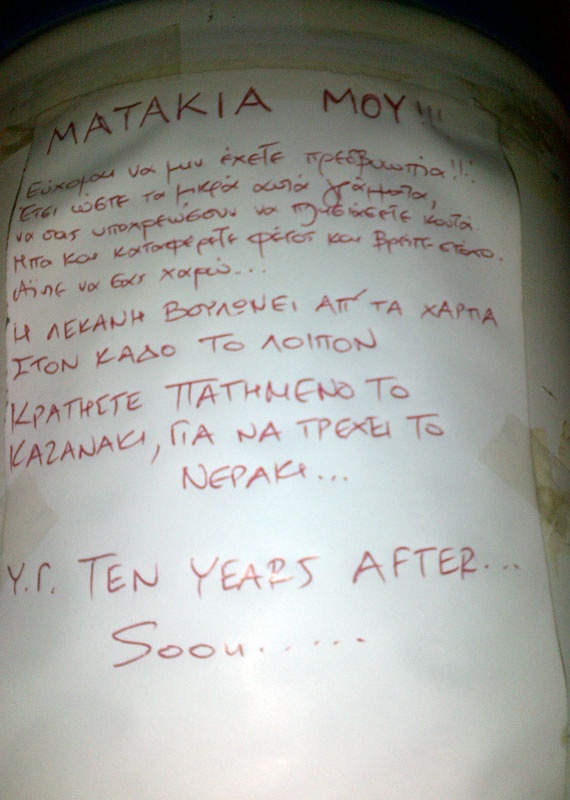 ΜΑΤΑΚΙΑ ΜΟΥ!!!
Εύχομαι να μην έχετε πρεσβυωπία!!!
Έτσι ώστε τα μικρά αυτά γράμματα,
να σας υποχρεώσουν να πλησιάσετε κοντά
Μπα και καταφέρετε φέτος και βρείτε στόχο.
Άιντε να σας χαρώ...
Η ΛΕΚΑΝΗ ΒΟΥΛΩΝΕΙ ΑΠ' ΤΑ ΧΑΡΤΙΑ
ΣΤΟΝ ΚΑΔΟ ΤΟ ΛΟΙΠΟΝ
ΚΡΑΤΗΣΤΕ ΠΑΤΗΜΕΝΟ ΤΟ
ΚΑΖΑΝΑΚΙ, ΓΙΑ ΝΑ ΤΡΕΧΕΙ ΤΟ
ΝΕΡΑΚΙ...
Υ.Γ. TEN YEARS AFTER...
Soon......